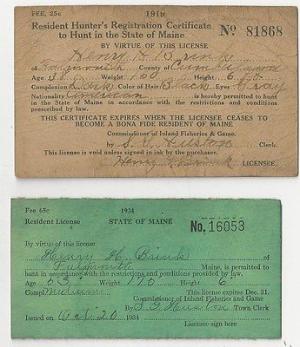 FEE, 25c. 191
Resident Hunter's Registration Certificate
to Hunt in the State of Maine No 81868
BY VIRTUE OF THIS LICENSE
Henry
of Falmouth County of Cumberland
Age 38 Weight 180 Height 6
Complexion Dark Color of Hair Black Eyes Gray
Nationality is hereby permitted to hunt
in the State of Maine in accordance with the restrictions and conditions
prescribed by law.
THIS CERTIFICATE EXPIRES WHEN THE LICENSEE CEASES TO
BECOME A BONA FIDE RESIDENT OF MAINE.
Commissioner of Inland Fisheries & Game.
By Clerk.
This license is void unless signed in ink by the purchaser.
Henry LICENSEE.
Fee 65c 1934
Resident License STATE OF MAINE No. 16053
By virtue of this license
Henry of
Falmouth Maine, is permitted to
hunt in accordance with the restrictions and conditions provided by law.
Age Weight 190 Height 6
Comp. Medium This license expires Dec. 31
Commissioner of Inland Fisheries and Game
By Town Clerk
Issued on Oct. 20 1934
Licensee sign here